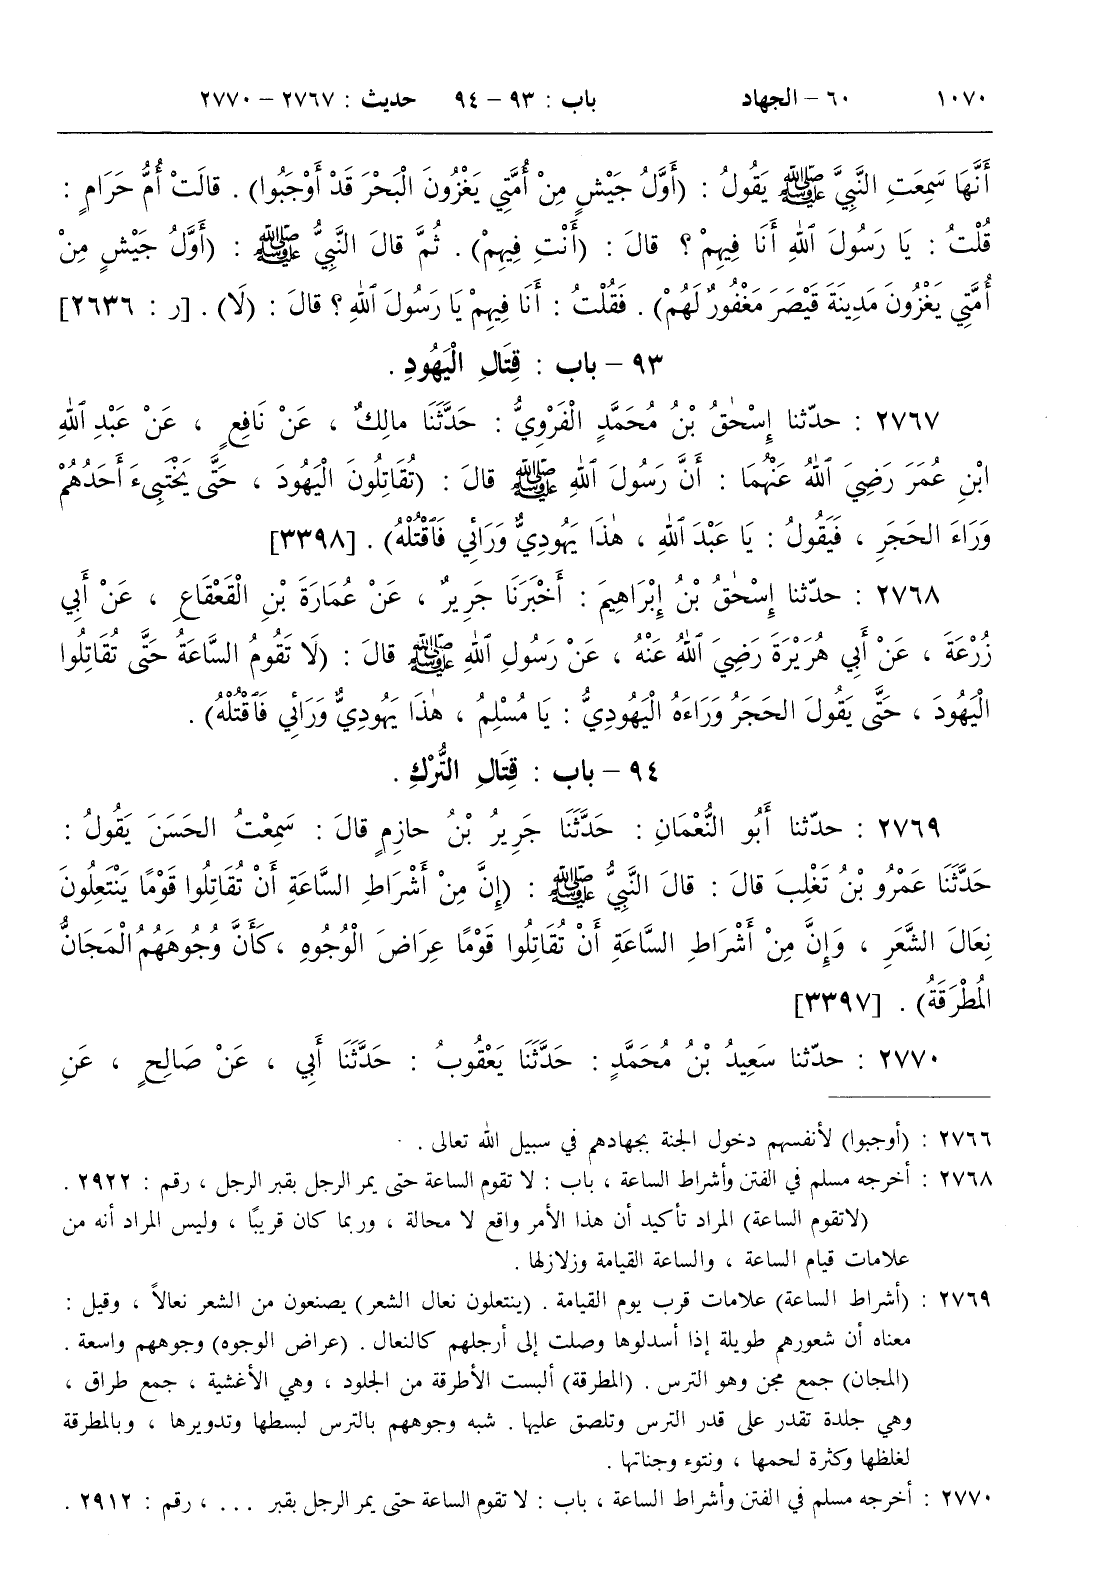 ١٠٧٠ ٦٠ – الجهاد باب : ٩٣ – ٩٤ حديث : ٢٧٦٧ – ٢٧٧٠
أَنَّهَا سَمِعَتِ النَّبِيَّ ﷺ يَقُولُ : (أَوَّلُ جَيْشٍ مِنْ أُمَّتِي يَغْزُونَ الْبَحْرَ قَدْ أَوْجَبُوا) . قالَتْ أُمُّ حَرَامٍ :
قُلْتُ : يَا رَسُولَ ٱللهِ أَنَا فِيهِمْ ؟ قالَ : (أَنْتِ فِيهِمْ) . ثُمَّ قالَ النَّبِيُّ ﷺ : (أَوَّلُ جَيْشٍ مِنْ
أُمَّتِي يَغْزُونَ مَدِينَةَ قَيْصَرَ مَغْفُورٌ لَهُمْ) . فَقُلْتُ : أَنَا فِيهِمْ يَا رَسُولَ ٱللهِ ؟ قالَ : (لَا) . [ر : ٢٦٣٦]
٩٣ – باب : قِتَالِ الْيَهُودِ .
٢٧٦٧ : حدّثنا إِسْحٰقُ بْنُ مُحَمَّدٍ الْفَرْوِيُّ : حَدَّثَنَا مالِكٌ ، عَنْ نَافِعٍ ، عَنْ عَبْدِ ٱللهِ
ابْنِ عُمَرَ رَضِيَ ٱللهُ عَنْهُمَا : أَنَّ رَسُولَ ٱللهِ ﷺ قالَ : (تُقَاتِلُونَ الْيَهُودَ ، حَتَّى يَخْتَبِىءَ أَحَدُهُمْ
وَرَاءَ الحَجَرِ ، فَيَقُولُ : يَا عَبْدَ ٱللهِ ، هٰذَا يَهُودِيٌّ وَرَائِي فَٱقْتُلْهُ) . [٣٣٩٨]
٢٧٦٨ : حدّثنا إِسْحٰقُ بْنُ إِبْرَاهِيمَ : أَخْبَرَنَا جَرِيرٌ ، عَنْ عُمَارَةَ بْنِ الْقَعْقَاعِ ، عَنْ أَبِي
زُرْعَةَ ، عَنْ أَبِي هُرَيْرَةَ رَضِيَ ٱللهُ عَنْهُ ، عَنْ رَسُولِ ٱللهِ ﷺ قالَ : (لَا تَقُومُ السَّاعَةُ حَتَّى تُقَاتِلُوا
الْيَهُودَ ، حَتَّى يَقُولَ الحَجَرُ وَرَاءَهُ الْيَهُودِيُّ : يَا مُسْلِمُ ، هٰذَا يَهُودِيٌّ وَرَائِي فَٱقْتُلْهُ) .
٩٤ – باب : قِتَالِ التُّرْكِ .
٢٧٦٩ : حدّثنا أَبُو النُّعْمَانِ : حَدَّثَنَا جَرِيرُ بْنُ حازِمٍ قالَ : سَمِعْتُ الحَسَنَ يَقُولُ :
حَدَّثَنَا عَمْرُو بْنُ تَغْلِبَ قالَ : قالَ النَّبِيُّ ﷺ : (إِنَّ مِنْ أَشْرَاطِ السَّاعَةِ أَنْ تُقَاتِلُوا قَوْمًا يَنْتَعِلُونَ
نِعَالَ الشَّعَرِ ، وَإِنَّ مِنْ أَشْرَاطِ السَّاعَةِ أَنْ تُقَاتِلُوا قَوْمًا عِرَاضَ الْوُجُوهِ ، كَأَنَّ وُجُوهَهُمُ الْمَجَانُّ
المُطْرَقَةُ) . [٣٣٩٧]
٢٧٧٠ : حدّثنا سَعِيدُ بْنُ مُحَمَّدٍ : حَدَّثَنَا يَعْقُوبُ : حَدَّثَنَا أَبِي ، عَنْ صَالِحٍ ، عَنِ
٢٧٦٦ : (أوجبوا) لأنفسهم دخول الجنة بجهادهم في سبيل الله تعالى .
٢٧٦٨ : أخرجه مسلم في الفتن وأشراط الساعة ، باب : لا تقوم الساعة حتى يمر الرجل بقبر الرجل ، رقم : ٢٩٢٢ .
(لاتقوم الساعة) المراد تأكيد أن هذا الأمر واقع لا محالة ، وربما كان قريبًا ، وليس المراد أنه من
علامات قيام الساعة ، والساعة القيامة وزلازلها .
٢٧٦٩ : (أشراط الساعة) علامات قرب يوم القيامة . (ينتعلون نعال الشعر) يصنعون من الشعر نعالاً ، وقيل :
معناه أن شعورهم طويلة إذا أسدلوها وصلت إلى أرجلهم كالنعال . (عراض الوجوه) وجوههم واسعة .
(المجان) جمع مجن وهو الترس . (المطرقة) ألبست الأطرقة من الجلود ، وهي الأغشية ، جمع طراق ،
وهي جلدة تقدر على قدر الترس وتلصق عليها . شبه وجوههم بالترس لبسطها وتدويرها ، وبالمطرقة
لغلظها وكثرة لحمها ، ونتوء وجناتها .
٢٧٧٠ : أخرجه مسلم في الفتن وأشراط الساعة ، باب : لا تقوم الساعة حتى يمر الرجل بقبر ... ، رقم : ٢٩١٢ .